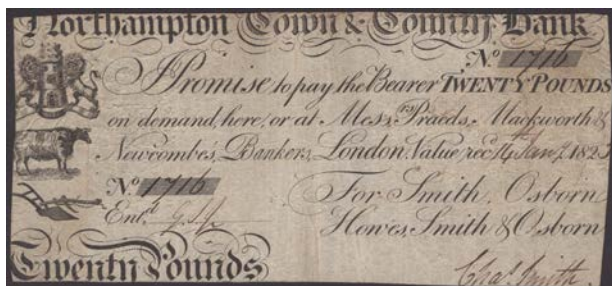 Northampton Town & County Bank
No. 1716
I Promise to pay the Bearer TWENTY POUNDS
on demand, here, or at Messrs. Praeds, Mackworth &
Newcombes, Bankers, London, Value recd. 14th Jany. 182
No. 1716
For Smith, Osborn
Entd.
Howes, Smith & Osborn
Twenty Pounds
Chas. Smith